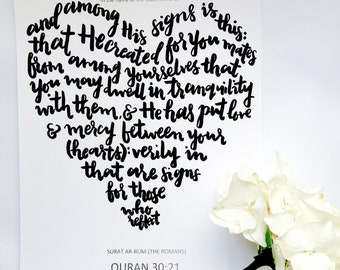 and among His signs is this:
that He created for you mates
from among yourselves that
you may dwell in tranquility
with them, & He has put love
& mercy between your
(hearts): verily in
that are signs
for those
who
reflect
SURAT AR-RUM (THE ROMANS)
QURAN 30:21